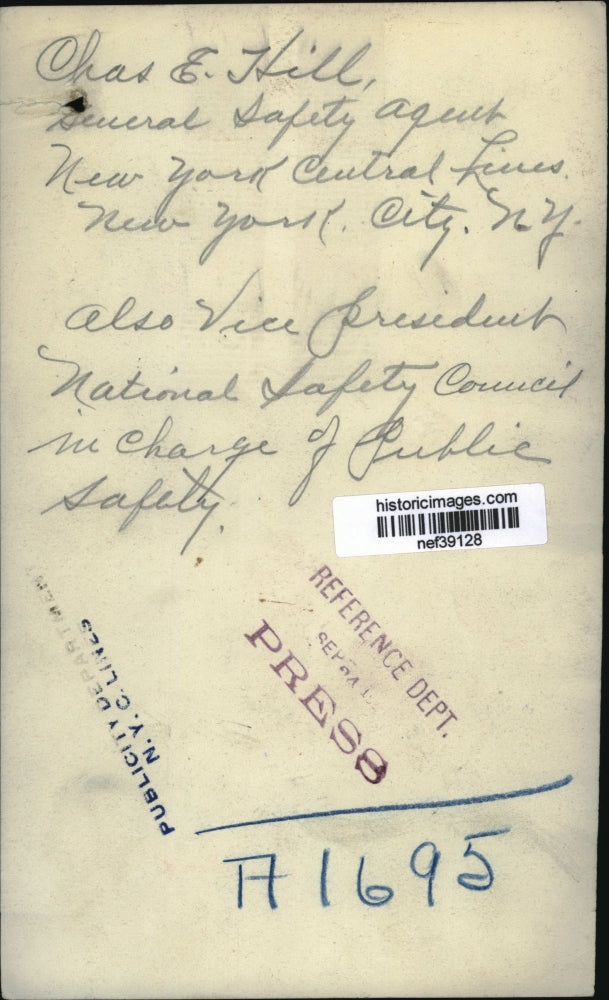 Chas E. Hill,
General Safety Agent
New York Central Lines.
New York. City. N.Y.
Also Vice President
National Safety Council
in Charge of Public
Safety.
historicimages.com
nef39128
REFERENCE DEPT.
SEP 24
PRESS
PUBLICITY DEPARTMENT
N.Y.C. LINES
A1695